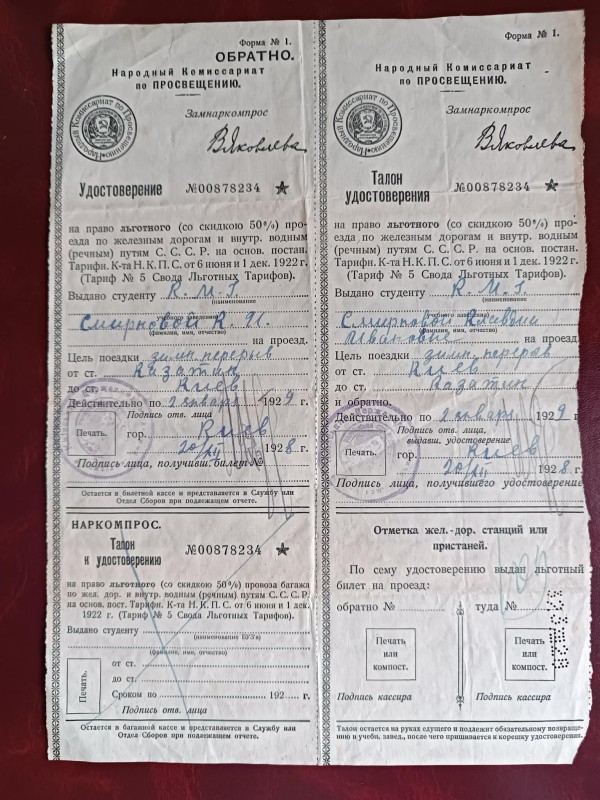 Форма № 1.
ОБРАТНО.
Народный Комиссариат
по ПРОСВЕЩЕНИЮ.
Народный Комиссариат по Просвещению
Замнаркомпрос
В Яковлева
Удостоверение №00878234
на право льготного (со скидкою 50%) про-
езда по железным дорогам и внутр. водным
(речным) путям С. С. С. Р. на основ. постан.
Тарифн. К-та Н. К. П. С. от 6 июня и 1 дек. 1922 г.
(Тариф № 5 Свода Льготных Тарифов).
Выдано студенту К. М. І.
(наименование
учебного заведения)
Смирновой К. И.
(фамилия, имя, отчество) на проезд.
Цель поездки зимн. перерыв
от ст. Казатин
до ст. Киев
Действительно по 2 января 1929 г.
Подпись отв. лица
Печать.
гор. Киев
20/XII 1928 г.
Подпись лица, получивш. билет №
Остается в билетной кассе и представляется в Службу или
Отдел Сборов при подлежащем отчете.
НАРКОМПРОС.
Талон
к удостоверению
№00878234
на право льготного (со скидкою 50%) провоза багажа
по жел. дор. и внутр. водным (речным) путям С. С. С. Р.
на основ. пост. Тарифн. К-та Н. К. П. С. от 6 июня и 1 дек.
1922 г. (Тариф № 5 Свода Льготных Тарифов).
Выдано студенту
(наименование ВУЗ'а)
(фамилия, имя, отчество)
Печать.
от ст.
до ст.
Сроком по 192 г.
Подпись отв. лица
Остается в багажной кассе и представляется в Службу или
Отдел Сборов при подлежащем отчете.
Форма № 1.
Народный Комиссариат
по ПРОСВЕЩЕНИЮ.
Народный Комиссариат по Просвещению
Замнаркомпрос
В Яковлева
Талон
удостоверения
№00878234
на право льготного (со скидкою 50%) про-
езда по железным дорогам и внутр. водным
(речным) путям С. С. С. Р. на основ. постан.
Тарифн. К-та Н. К. П. С. от 6 июня и 1 дек. 1922 г.
(Тариф № 5 Свода Льготных Тарифов).
Выдано студенту К. М. І.
(наименование
учебного заведения)
Смирновой
Ивановне
(фамилия, имя, отчество) на проезд.
Цель поездки зимн. перерыв
от ст. Киев
до ст. Казатин
и обратно.
Действительно по 2 января 1929 г.
Подпись отв. лица,
выдавш. удостоверение
Печать.
гор. Киев
20/XII 1928 г.
Подпись лица, получившего удостоверение
Отметка жел.-дор. станций или
пристаней.
По сему удостоверению выдан льготный
билет на проезд:
обратно № туда №
Печать
или
компост.
Печать
или
компост.
Подпись кассира
Подпись кассира
Талон остается на руках едущего и подлежит обязательному возвраще-
нию в учебн. завед., после чего пришивается к корешку удостоверения.